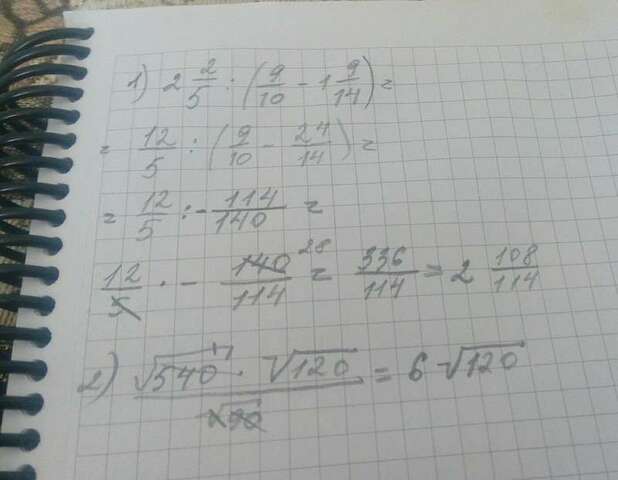 1) 2 2/5 : (9/10 - 1 9/14) =
= 12/5 : (9/10 - 24/14) =
= 12/5 : - 114/140 =
12/5 · - 140/114 28 = 336/114 = 2 108/114
2) √540 · √120 / √90 = 6 √120